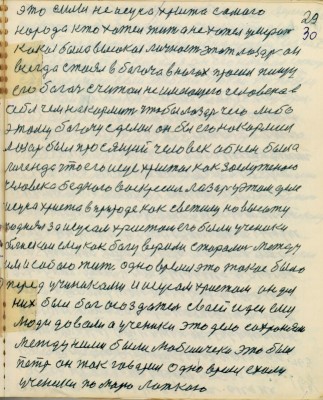 это сили не иисуса христа самого
народа кто хотел жить а не хотел умерать
какая была высокая личность этот лазарь он
всегда стоял в богоча в ногах просил пищу
его богач считал не имающего человека в
себя чем накормит чтобы лазарь чего либо
этому богачу сделал он бы его накормил
лазар был просящий человек об нем была
легенда что его исус христос как заслуженого
человека бедного воскресил лазаря этому дни
исуса христа в природе как светилу на высоту
подняли за исусам христом его были ученики
ему как богу верили старались между
ими собою жить одно время это такое было
перед учиниками и исусам христом он для
них был бог создател своей идеи ему
люди давали а ученики это дело сохраняли
между ними были любимчики это был
петр он так гаварил одно время ехали
ученики по морю
29
30